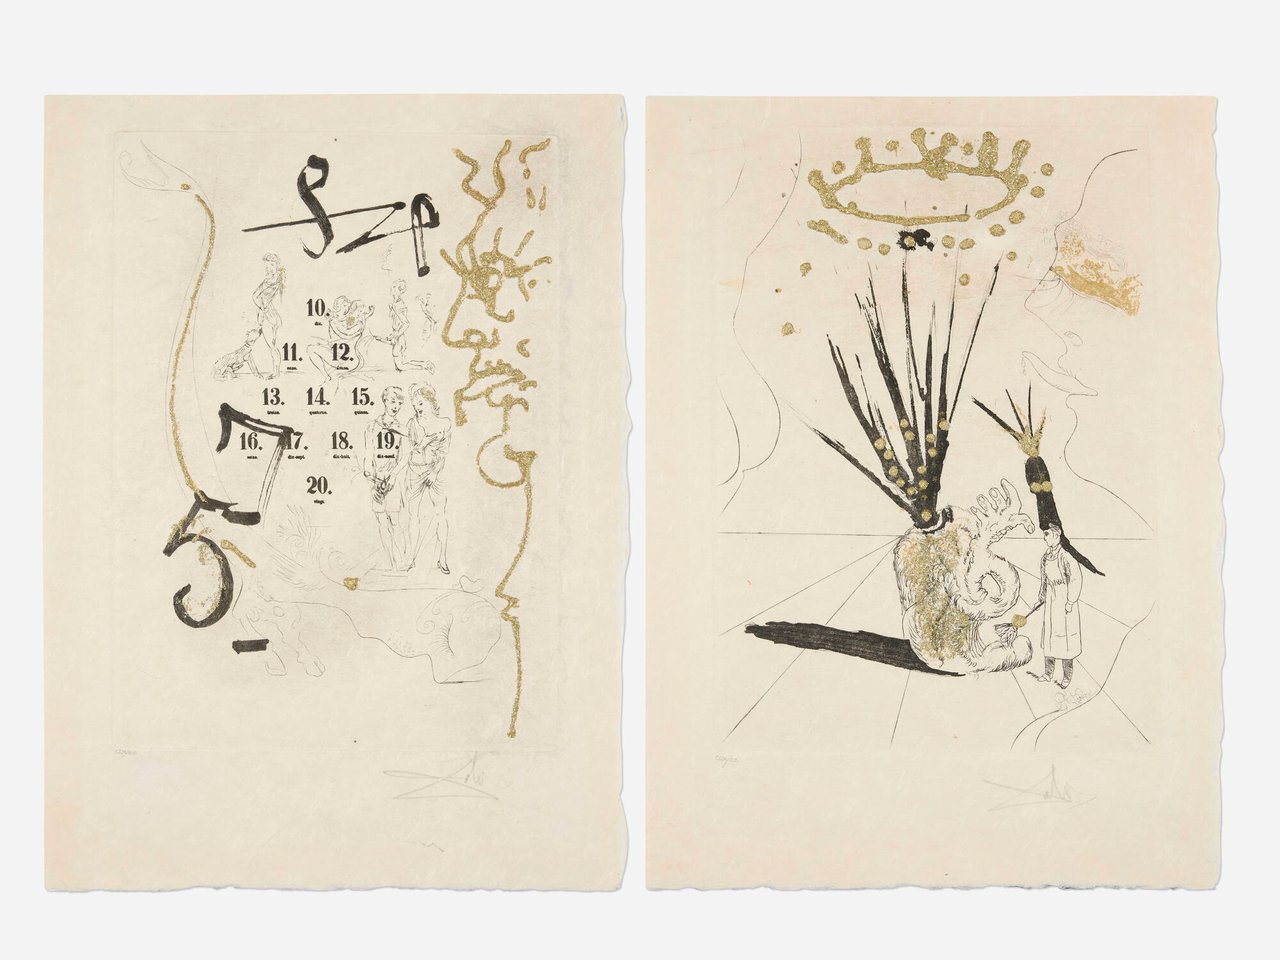 10.
dix.
11. 12.
onze. douze.
13. 14. 15.
treize. quatorze. quinze.
16. 17. 18. 19.
seize. dix-sept. dix-huit. dix-neuf.
20.
vingt.
7
5
Dalí
Dalí